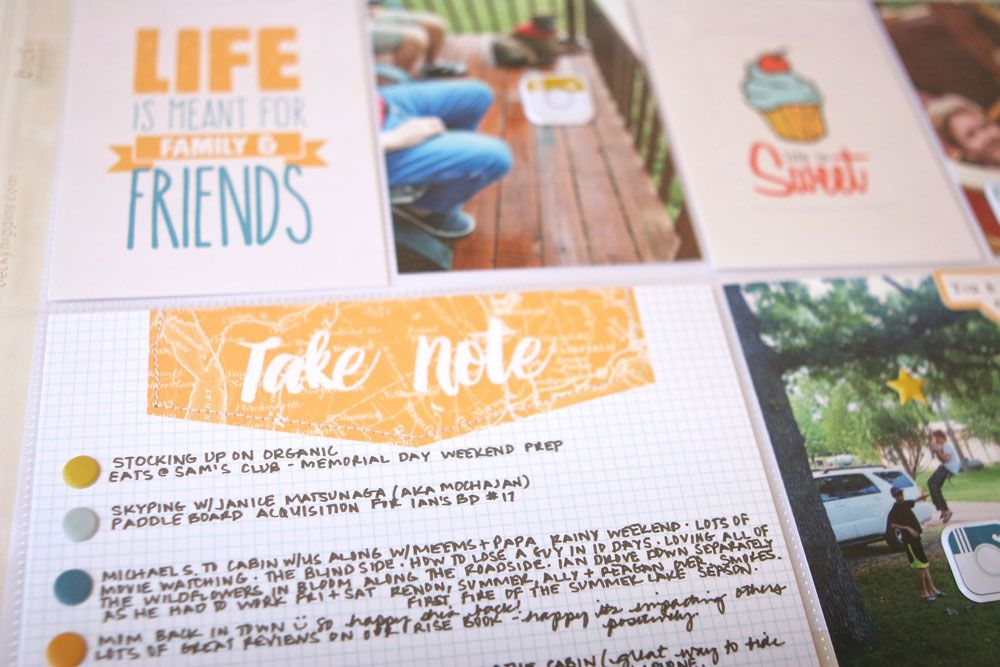 LIFE
IS MEANT FOR
FAMILY &
FRIENDS
Sweet
Take note
STOCKING UP ON ORGANIC
EATS @ SAM'S CLUB - MEMORIAL DAY WEEKEND PREP
SKYPING W/JANICE MATSUNAGA (AKA MOCHAJAN)
PADDLE BOARD ACQUISITION FOR IAN'S BD #17
MICHAEL S. TO CABIN W/US ALONG W/MEEMS + PAPA. RAINY WEEKEND. LOTS OF
MOVIE WATCHING. THE BLIND SIDE. HOW TO LOSE A GUY IN 10 DAYS. LOVING ALL OF
THE WILDFLOWERS IN BLOOM ALONG THE ROADSIDE. IAN DROVE DOWN SEPARATELY
AS HE HAD TO WORK FRI + SAT. SUMMER, ALLY + REAGAN OVER. SMORES.
FIRST FIRE OF THE SUMMER LAKE SEASON.
MIMI BACK IN TOWN so happy she's back!
LOTS OF GREAT REVIEWS ON OUR RISE BOOK - happy its impacting others
positively
THE CABIN (great way to